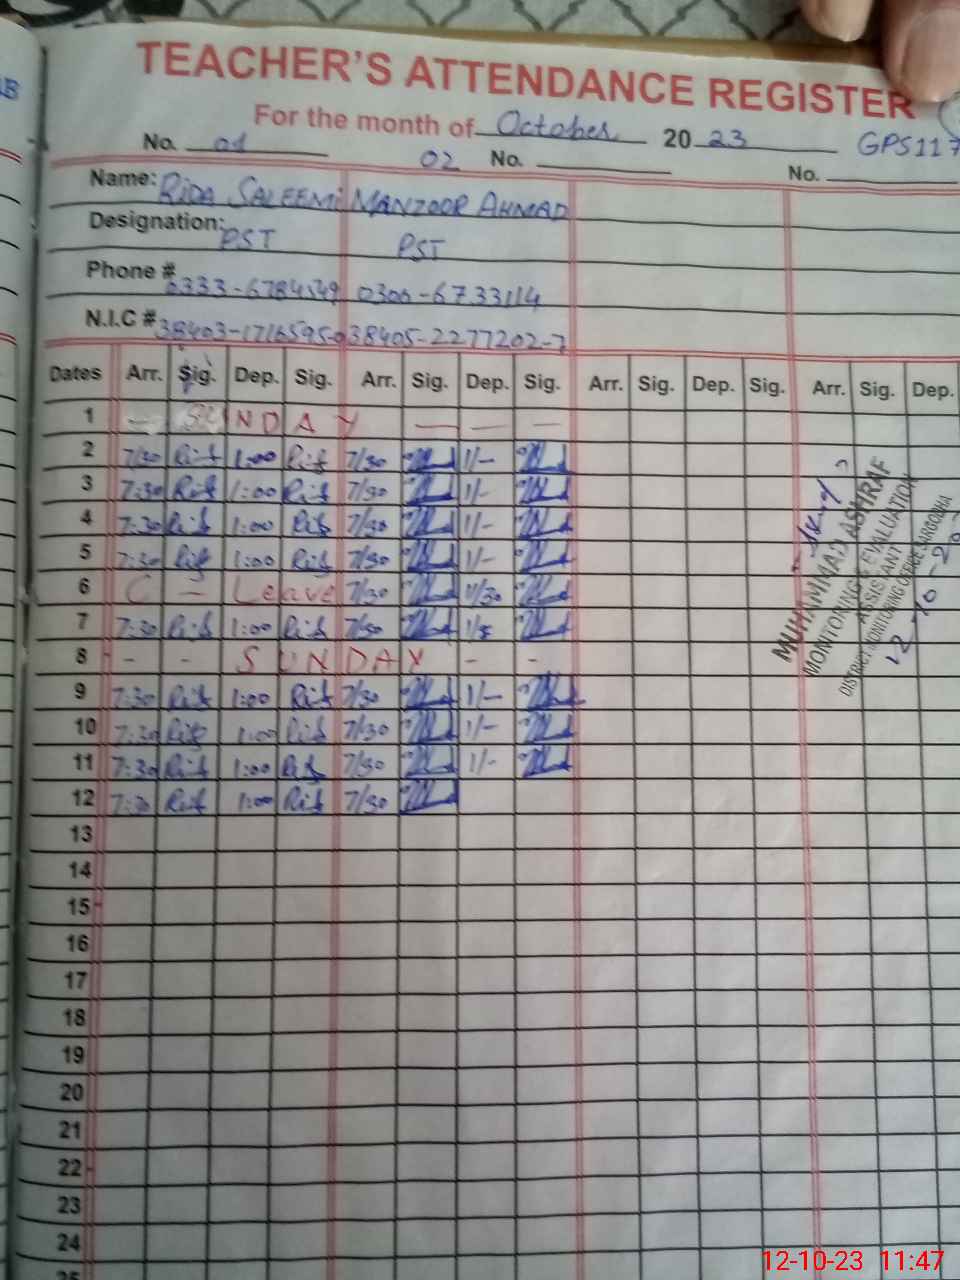 TEACHER'S ATTENDANCE REGISTER
For the month of October 20 23 GPS117
No. 01 02 No. No.
Name: RIDA SALEEMI MANZOOR AHMAD
Designation: PST PST
Phone # 0333-6784549 0306-6733114
N.I.C # 38403-1716595-0 38405-2277202-7
Dates Arr. Sig. Dep. Sig. Arr. Sig. Dep. Sig. Arr. Sig. Dep. Sig. Arr. Sig. Dep.
1 — SUNDAY — — —
2 7/30 1:00 7/30 1/-
3 7:30 1:00 7/30 1/-
4 7:30 1:00 7/30 1/-
5 7:30 1:00 7/30 1/-
6 C — Leave 7/30 11/30
7 7:30 1:00 7/30
8 - - SUNDAY - -
9 7:30 1:00 7/30 1/-
10 7:30 1:00 7/30 1/-
11 7:30 1:00 7/30 1/-
12 7:30 1:00 7/30
13
14
15
16
17
18
19
20
21
22
23
24
25
MUHAMMAD ASHRAF
MONITORING & EVALUATION
ASSISTANT
DISTRICT MONITORING OFFICE SARGODHA
12-10-23 11:47